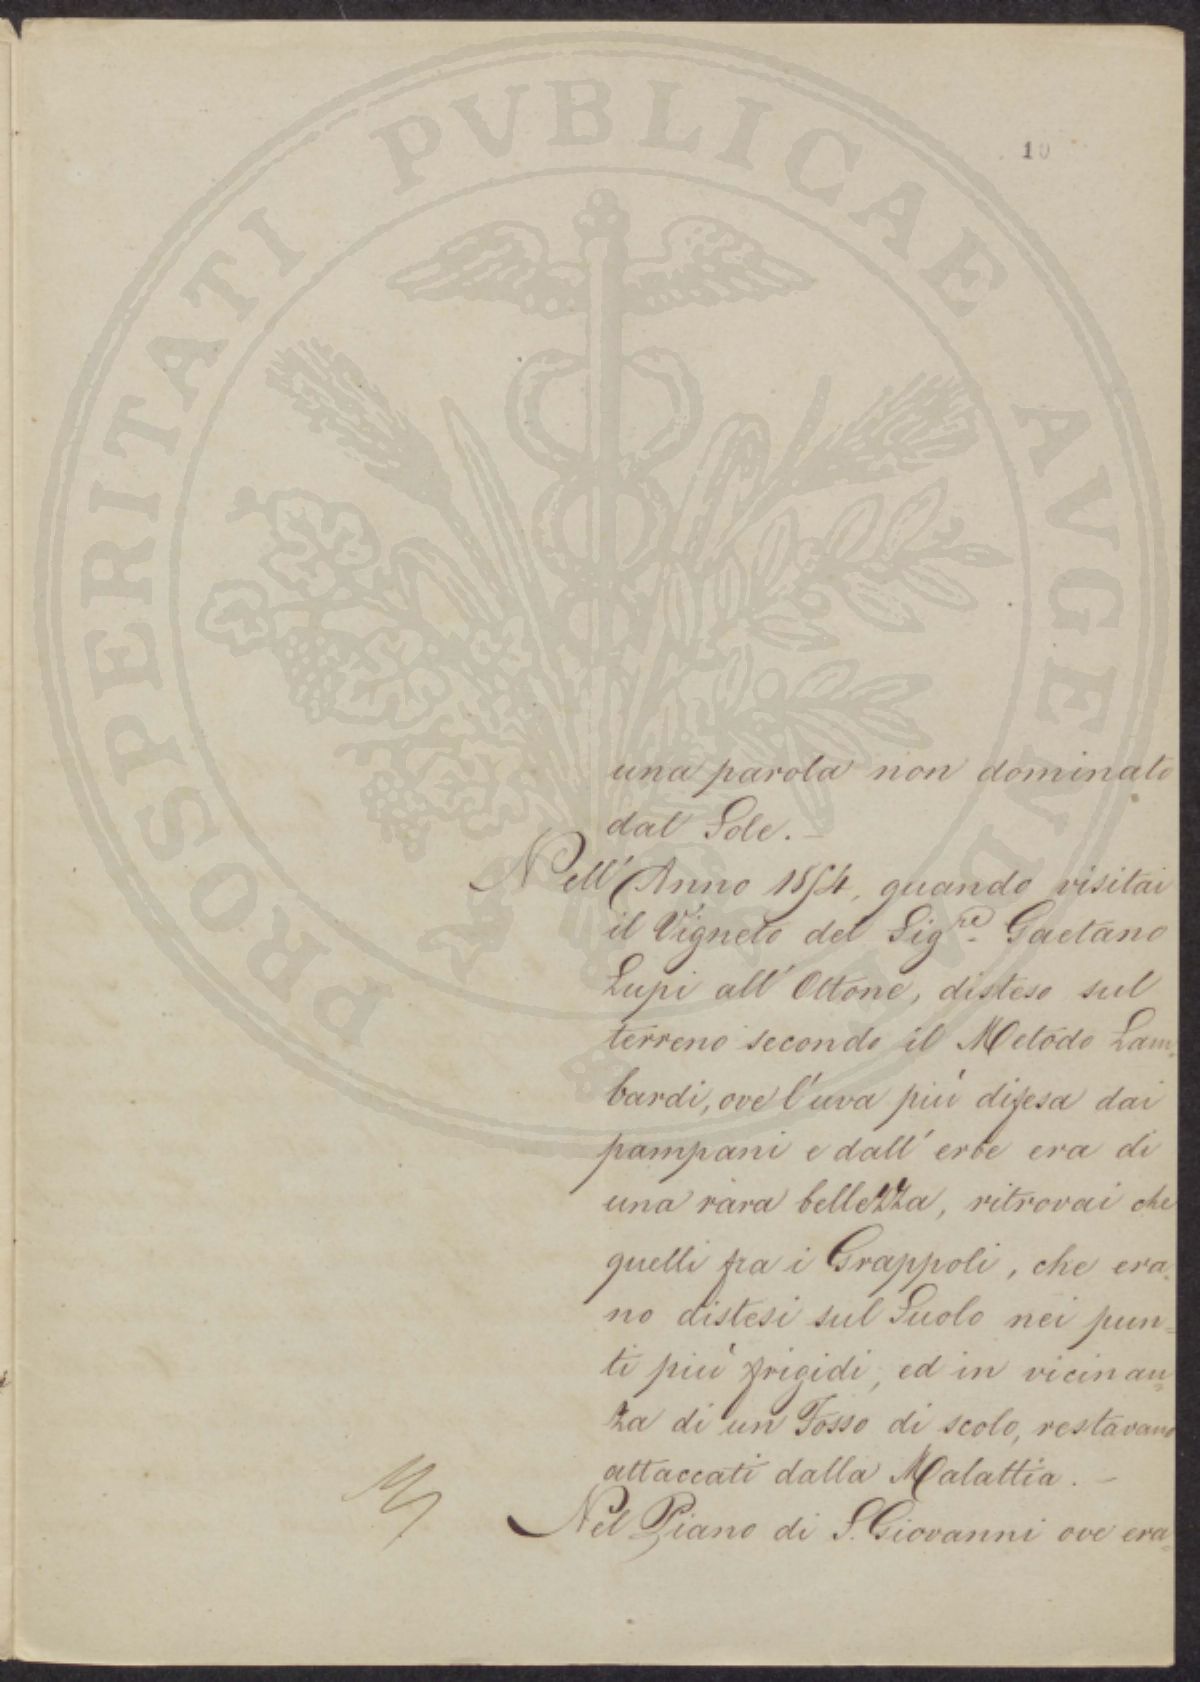 PROSPERITATI PVBLICAE AVGENDAE
10
una parola non dominato
dal Sole. —
Nell' Anno 1854, quando visitai
il Vigneto del Sig.re Gaetano
Lupi all' Ottone, disteso sul
terreno secondo il Metodo Lam-
bardi, ove l'uva più difesa dai
pampani e dall' erbe era di
una rara bellezza, ritrovai che
quelli fra i Grappoli, che era-
no distesi sul Suolo nei pun-
ti più frigidi, ed in vicinan-
za di un Fosso di scolo, restavano
attaccati dalla Malattia. —
Nel Piano di S. Giovanni ove era-